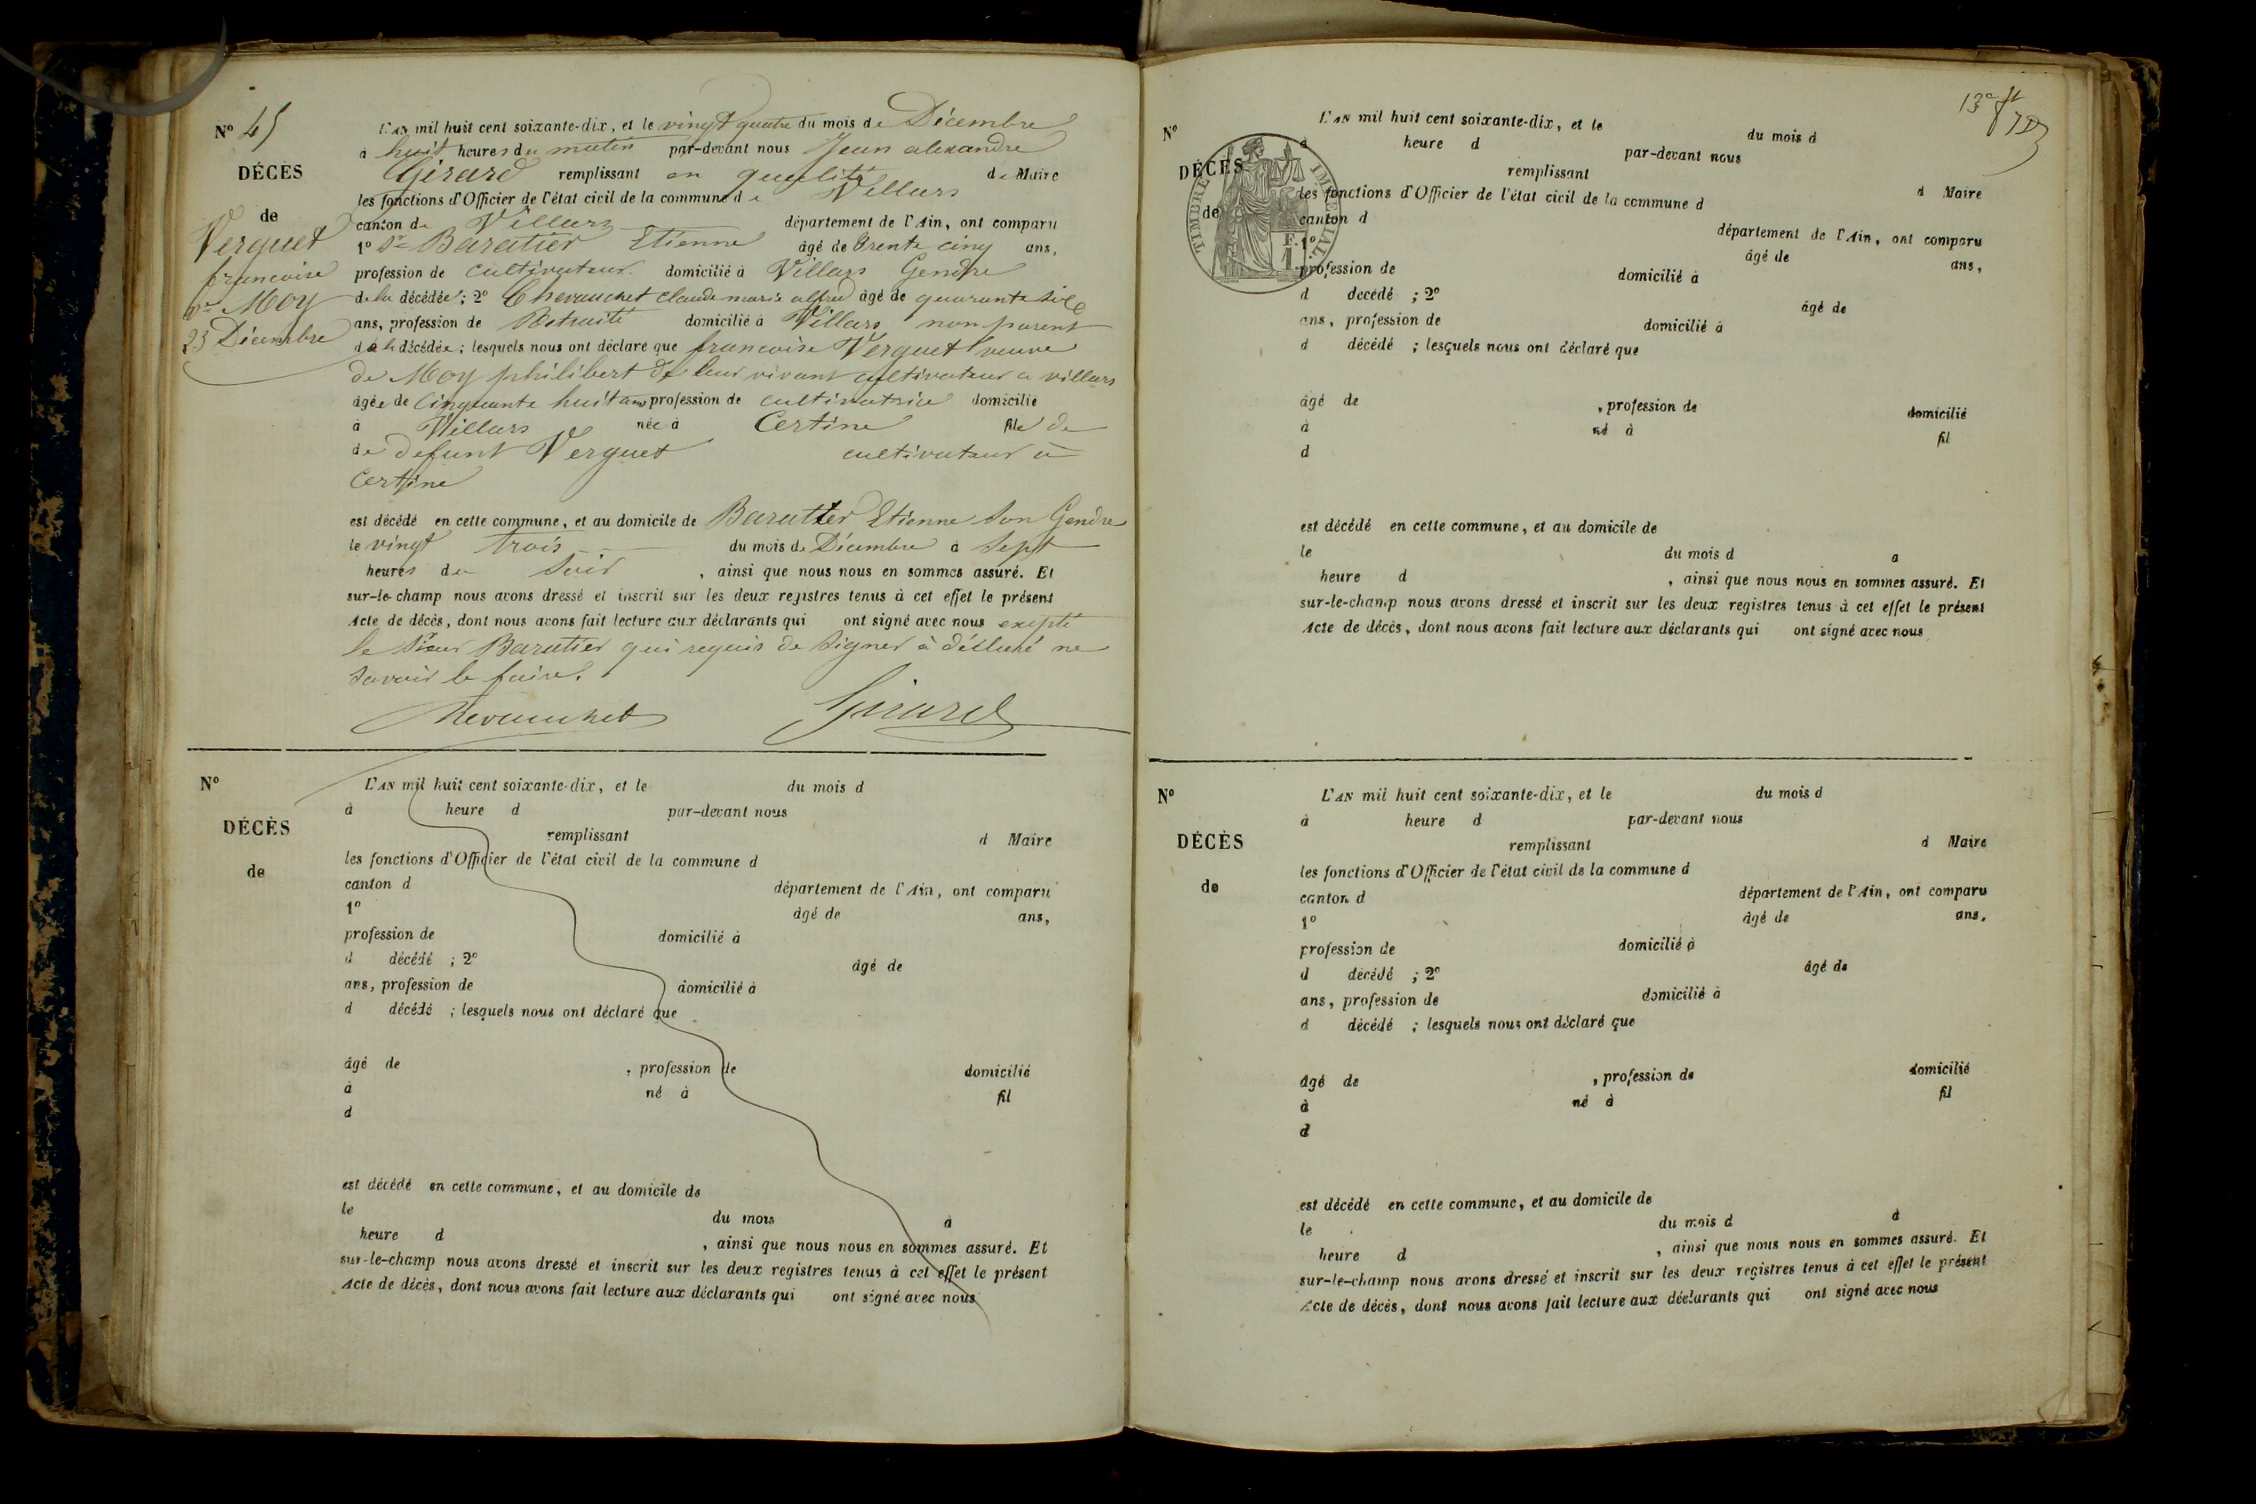 Nº 45
DÉCÈS
de
Verguet
francoise
ve Moy
23 Décembre
L'AN mil huit cent soixante-dix, et le vingt quatre du mois de Décembre
à huit heures du matin par-devant nous Jean alexandre
Girard remplissant en qualité de Maire
les fonctions d'Officier de l'état civil de la commune de Villars
canton de Villars département de l'Ain, ont comparu
1º Sr Baratier Etienne âgé de trente cinq ans,
profession de cultivateur domicilié à Villars Gendre
de la décédée ; 2º Chevauchet Claude marie alfred âgé de quarante six
ans, profession de Retraité domicilié à Villars non parent
de la décédée ; lesquels nous ont déclaré que francoise Verguet veuve
de Moy philibert de leur vivant cultivateur a villars
âgée de cinquante huit ans profession de cultivatrice domicilié
à Villars née à Certine fille de
de defunt Verguet cultivateur à
Certine
est décédé en cette commune, et au domicile de Baratier Etienne son Gendre
le vingt trois du mois de Décembre à sept
heures du soir , ainsi que nous nous en sommes assuré. Et
sur-le-champ nous avons dressé et inscrit sur les deux registres tenus à cet effet le présent
Acte de décès, dont nous avons fait lecture aux déclarants qui ont signé avec nous excepté
le Sieur Baratier qui requis de signer à déclaré ne
savoir le faire.
Chevauchet Girard
Nº
DÉCÈS
de
L'AN mil huit cent soixante-dix, et le du mois d
à heure d par-devant nous
remplissant d Maire
les fonctions d'Officier de l'état civil de la commune d
canton d département de l'Ain, ont comparu
1º âgé de ans,
profession de domicilié à
d décédé ; 2º âgé de
ans, profession de domicilié à
d décédé ; lesquels nous ont déclaré que
âgé de , profession de domicilié
à né à fil
d
est décédé en cette commune, et au domicile de
le du mois à
heure d , ainsi que nous nous en sommes assuré. Et
sur-le-champ nous avons dressé et inscrit sur les deux registres tenus à cet effet le présent
Acte de décès, dont nous avons fait lecture aux déclarants qui ont signé avec nous
Nº
DÉCÈS
de
TIMBRE IMPÉRIAL.
F.
1
L'AN mil huit cent soixante-dix, et le du mois d
à heure d par-devant nous
remplissant d Maire
les fonctions d'Officier de l'état civil de la commune d
canton d département de l'Ain, ont comparu
1º âgé de ans,
profession de domicilié à
d décédé ; 2º âgé de
ans, profession de domicilié à
d décédé ; lesquels nous ont déclaré que
âgé de , profession de domicilié
à né à fil
d
est décédé en cette commune, et au domicile de
le du mois d à
heure d , ainsi que nous nous en sommes assuré. Et
sur-le-champ nous avons dressé et inscrit sur les deux registres tenus à cet effet le présent
Acte de décès, dont nous avons fait lecture aux déclarants qui ont signé avec nous
Nº
DÉCÈS
de
L'AN mil huit cent soixante-dix, et le du mois d
à heure d par-devant nous
remplissant d Maire
les fonctions d'Officier de l'état civil de la commune d
canton d département de l'Ain, ont comparu
1º âgé de ans,
profession de domicilié à
d décédé ; 2º âgé de
ans, profession de domicilié à
d décédé ; lesquels nous ont déclaré que
âgé de , profession de domicilié
à né à fil
d
est décédé en cette commune, et au domicile de
le du mois d à
heure d , ainsi que nous nous en sommes assuré. Et
sur-le-champ nous avons dressé et inscrit sur les deux registres tenus à cet effet le présent
Acte de décès, dont nous avons fait lecture aux déclarants qui ont signé avec nous